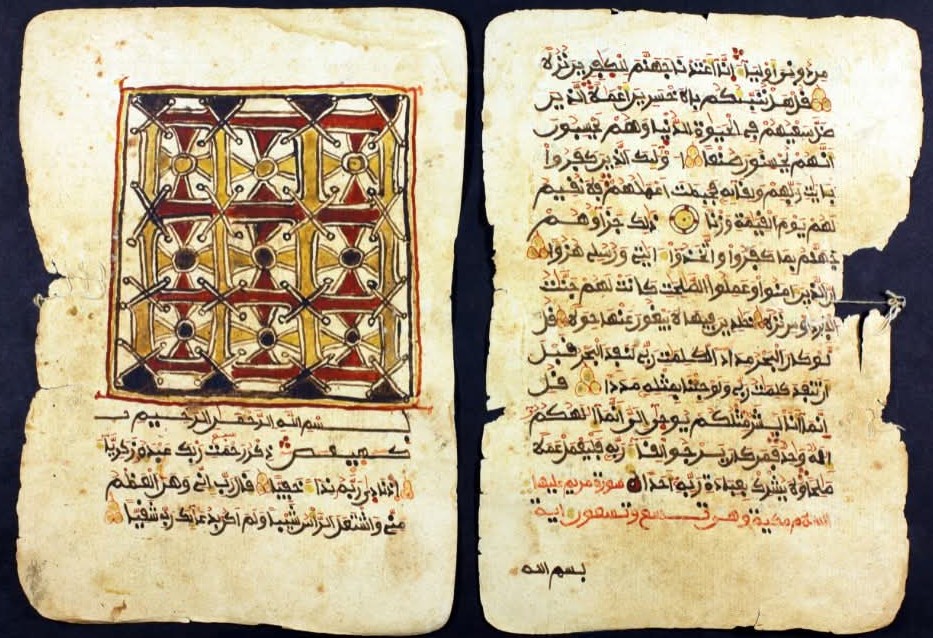 من دوني اولياء انا اعتدنا جهنم للكفرين نزلا
قل هل ننبيكم بالاخسرين اعملا الذين
ضل سعيهم في الحيوة الدنيا وهم يحسبون
انهم يحسنون صنعا اوليك الذين كفروا
بايت ربهم ولقايه فحبطت اعملهم فلا نقيم
لهم يوم القيمة وزنا ذلك جزاوهم
جهنم بما كفروا واتخذوا ايتي ورسلي هزوا
ان الذين امنوا وعملوا الصلحت كانت لهم جنت
الفردوس نزلا خلدين فيها لا يبغون عنها حولا قل
لو كان البحر مدادا لكلمت ربي لنفد البحر قبل
ان تنفد كلمت ربي ولو جينا بمثله مددا قل
انما انا بشر مثلكم يوحى الي انما الهكم
اله وحد فمن كان يرجوا لقا ربه فليعمل عملا
صلحا ولا يشرك بعبادة ربه احدا سورة مريم عليها
السلام مكية وهي تسع وتسعون اية
بسم الله
بسم الله الرحمن الرحيم
كهيعص ذكر رحمت ربك عبده زكريا
اذ نادى ربه ندا خفيا قال رب اني وهن العظم
مني واشتعل الراس شيبا ولم اكن بدعايك رب شقيا